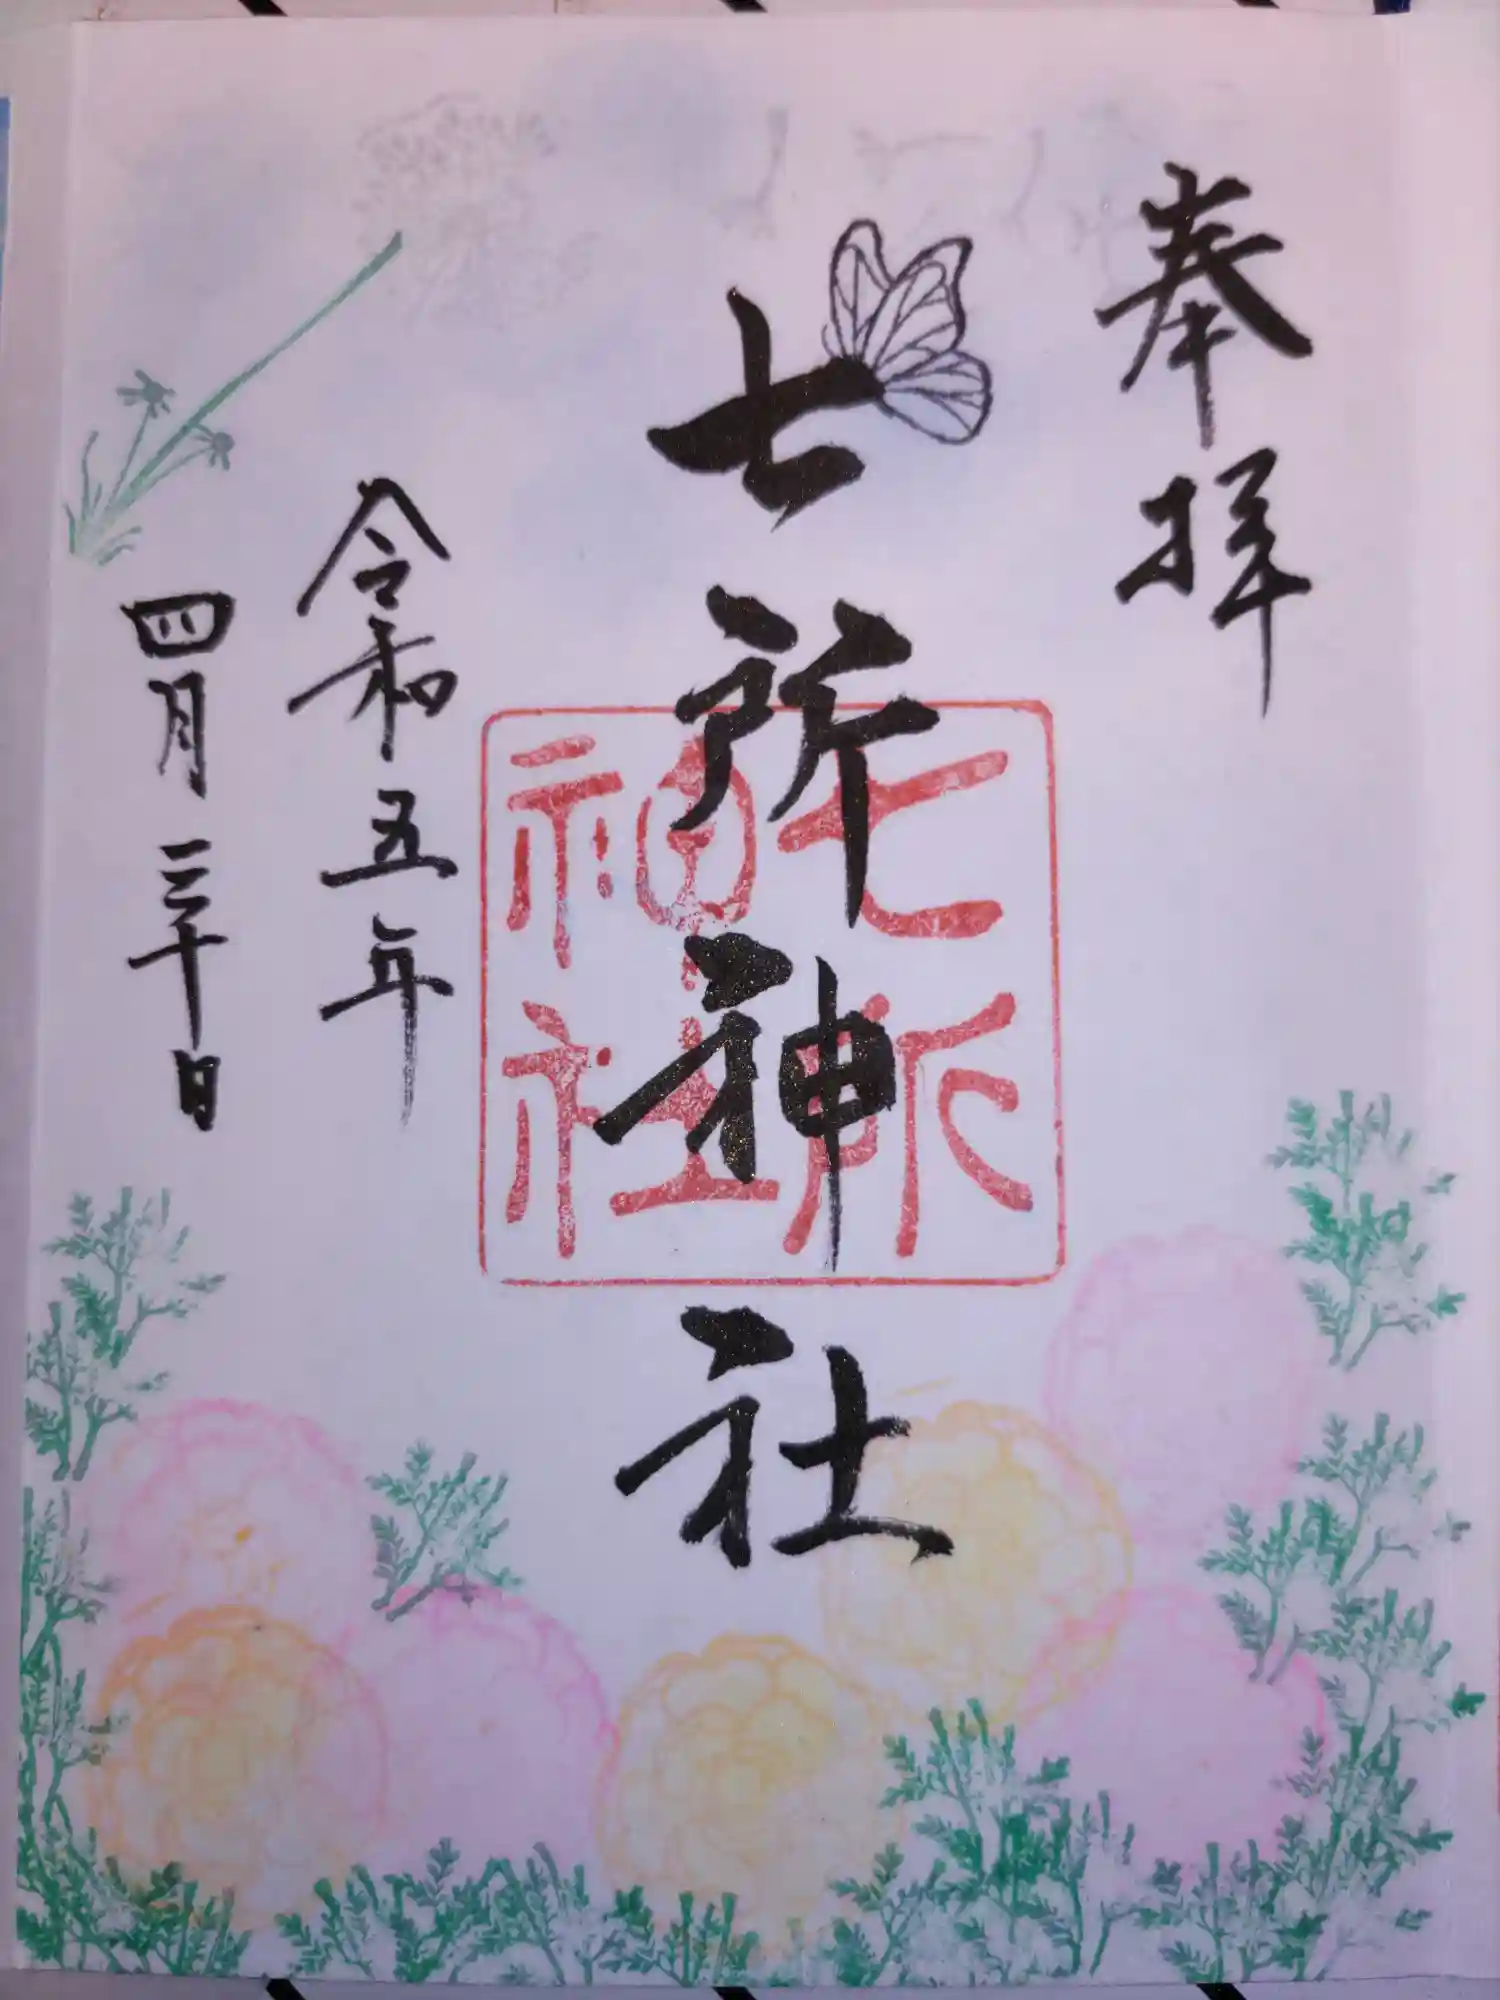 奉拝
七所神社
七所神社
令和五年
四月三十日